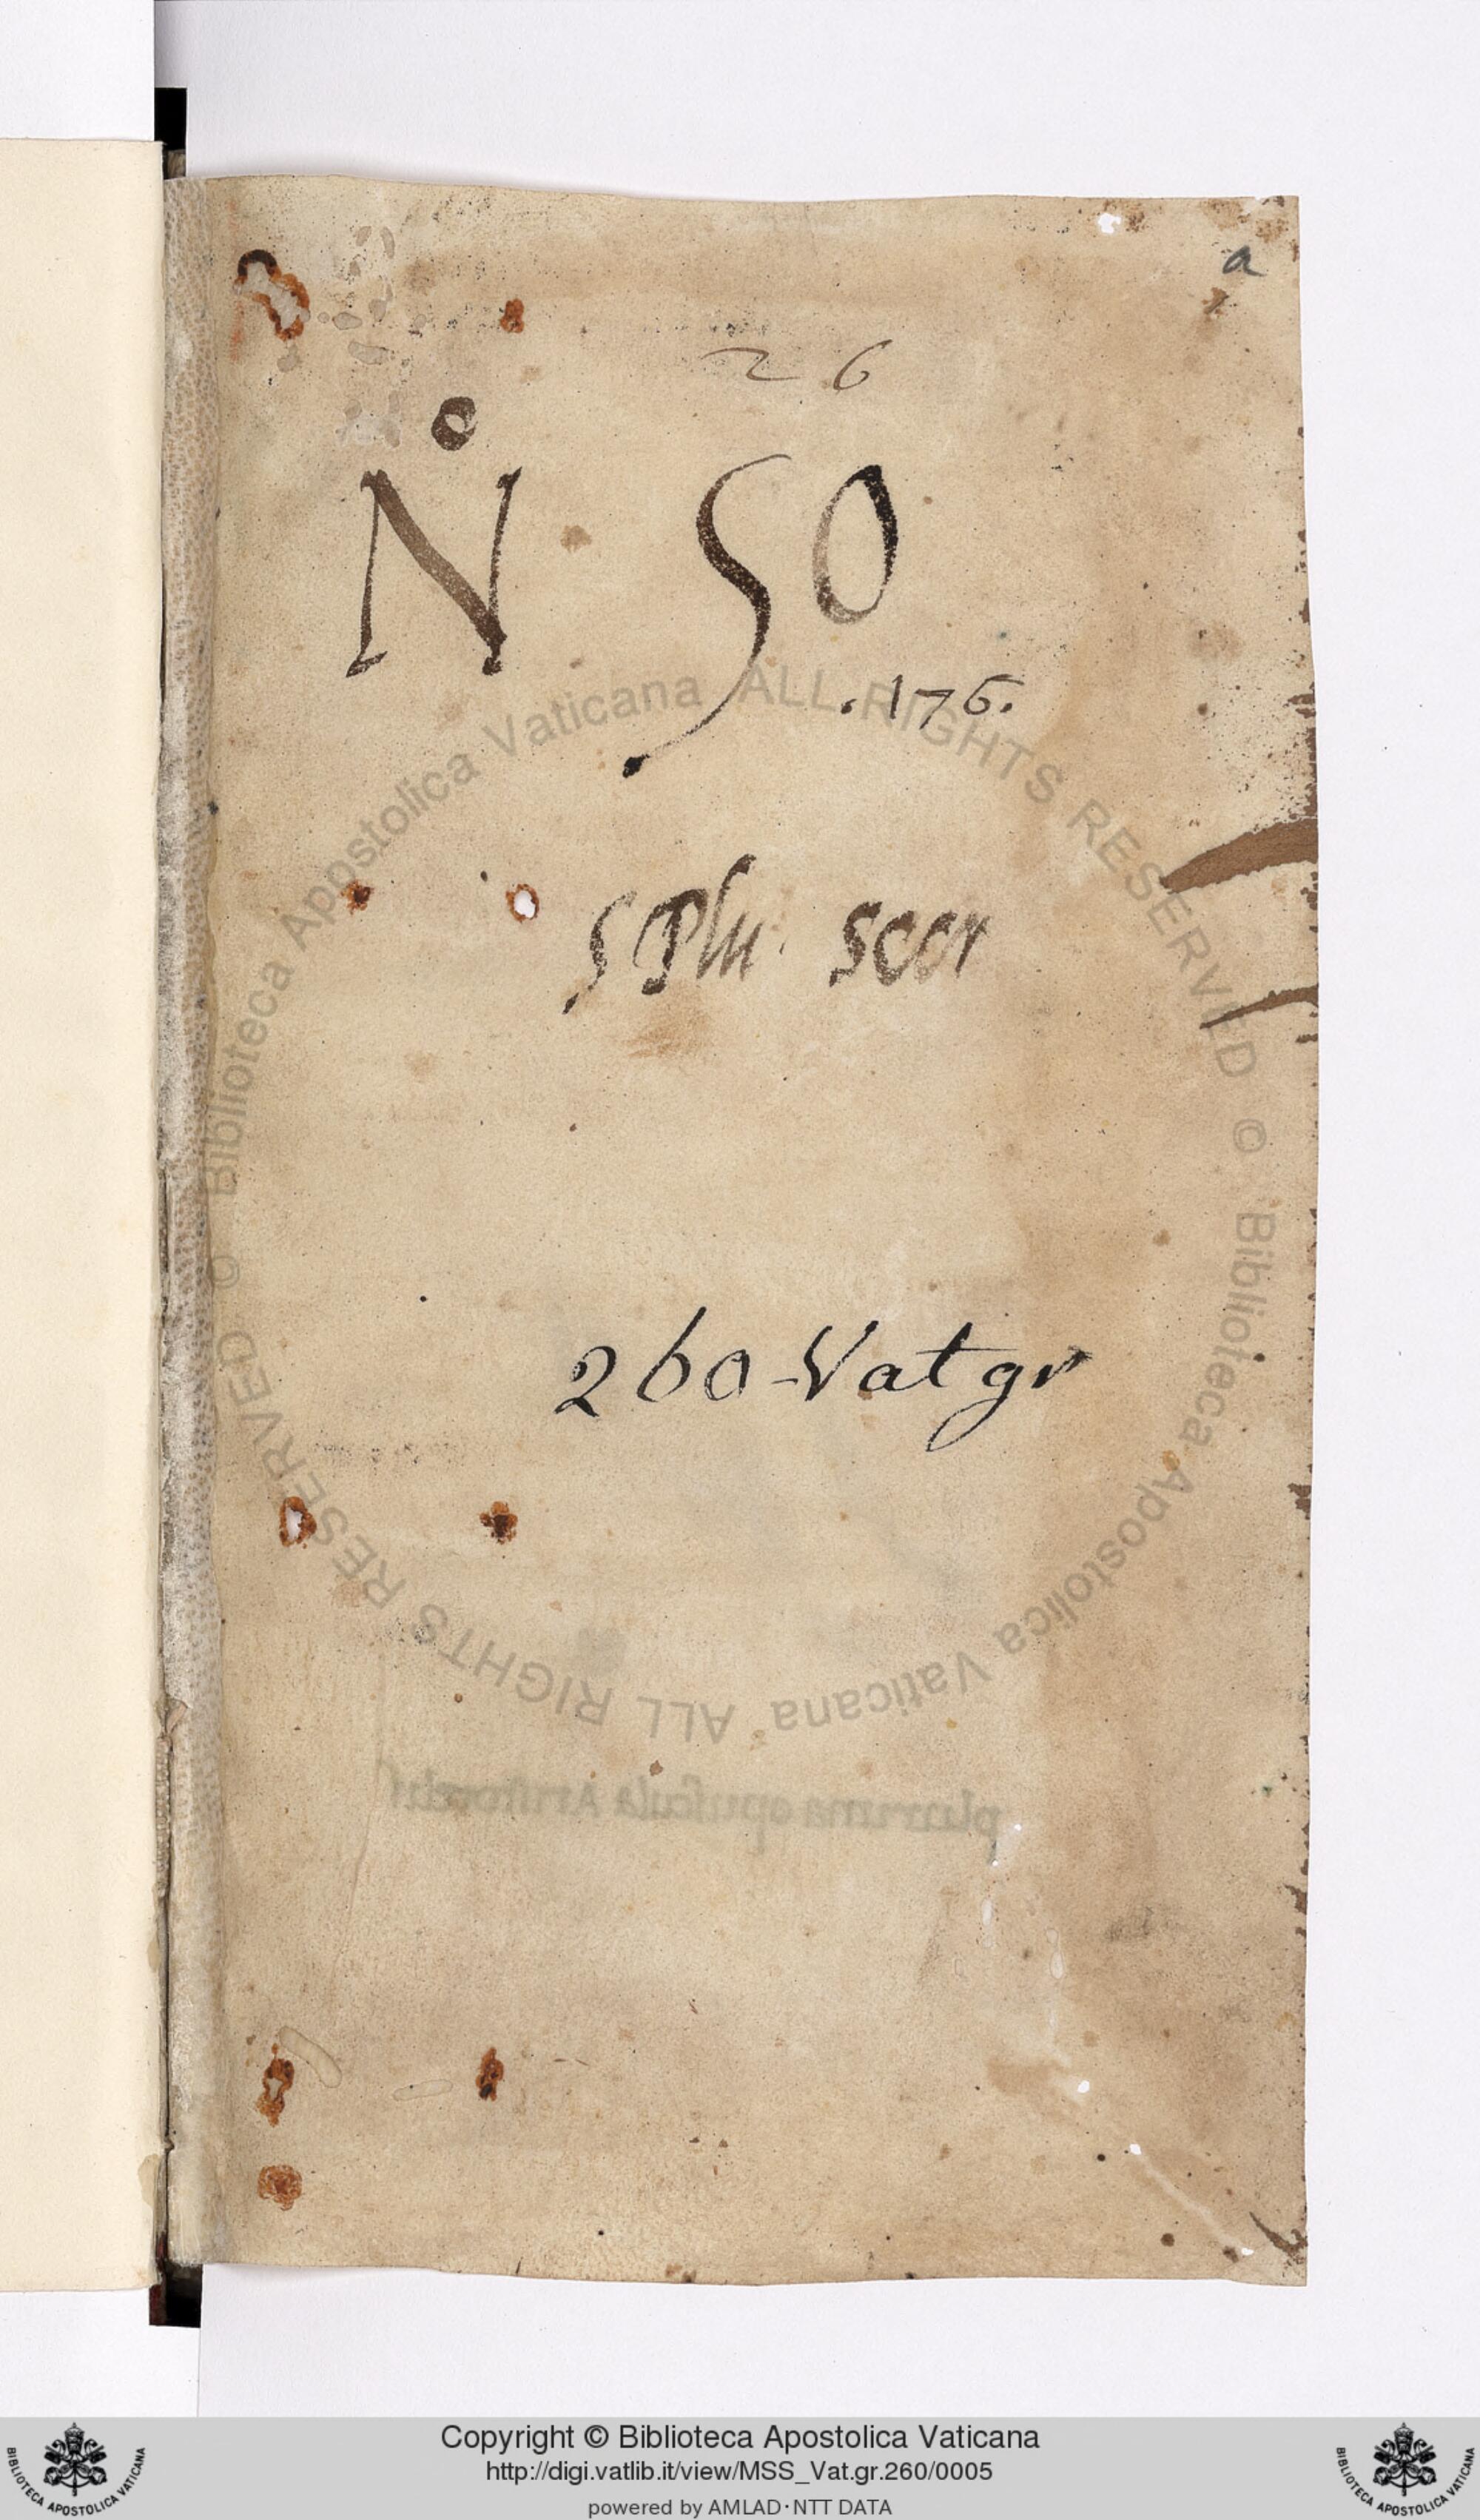 a
26
N° 50
.176.
5 Plu. secr
260-Vat gr
plurima opuscula Aristotelis
© Biblioteca Apostolica Vaticana ALL RIGHTS RESERVED © Biblioteca Apostolica Vaticana ALL RIGHTS RESERVED
Copyright © Biblioteca Apostolica Vaticana
http://digi.vatlib.it/view/MSS_Vat.gr.260/0005
powered by AMLAD·NTT DATA
BIBLIOTECA APOSTOLICA VATICANA
BIBLIOTECA APOSTOLICA VATICANA